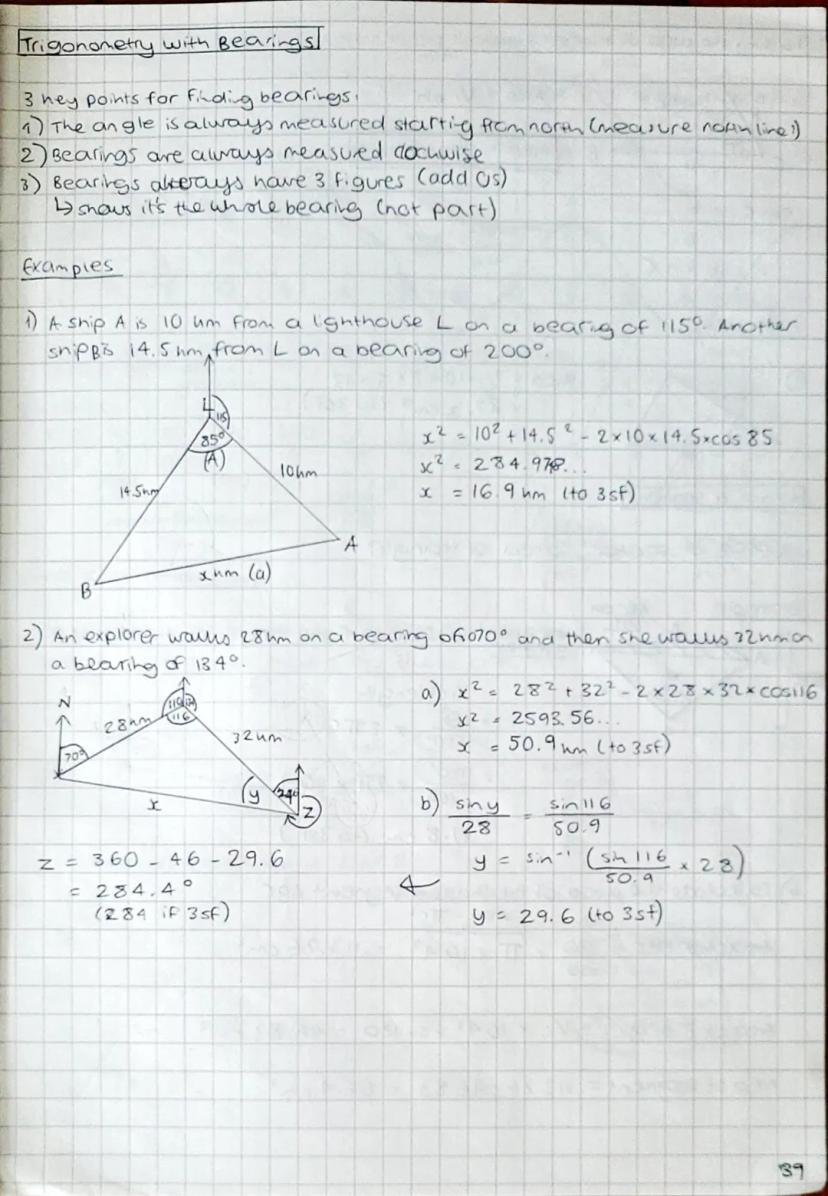 Trigonometry with Bearings
3 key points for finding bearings:
1) The angle is always measured starting from north (measure north line!)
2) Bearings are always measured clockwise
3) Bearings always have 3 figures (add 0s)
↳ shows it's the whole bearing (not part)
Examples
1) A ship A is 10 km from a lighthouse L on a bearing of 115°. Another
ship B is 14.5 km from L on a bearing of 200°.
L
115
85°
(A)
14.5km
10km
A
x km (a)
B
x² = 10² + 14.5² - 2×10×14.5×cos 85
x² = 284.978...
x = 16.9 km (to 3sf)
2) An explorer walks 28km on a bearing of 070° and then she walks 32km on
a bearing of 134°.
N
28km
110
134
116
32km
70°
x
y
Z
a) x² = 28² + 32² - 2×28×32×cos116
x² = 2593.56...
x = 50.9 km (to 3sf)
b) sin y / 28 = sin 116 / 50.9
y = sin⁻¹ (sin 116 / 50.9 × 28)
y = 29.6 (to 3sf)
z = 360 - 46 - 29.6
= 284.4°
(284 if 3sf)
39